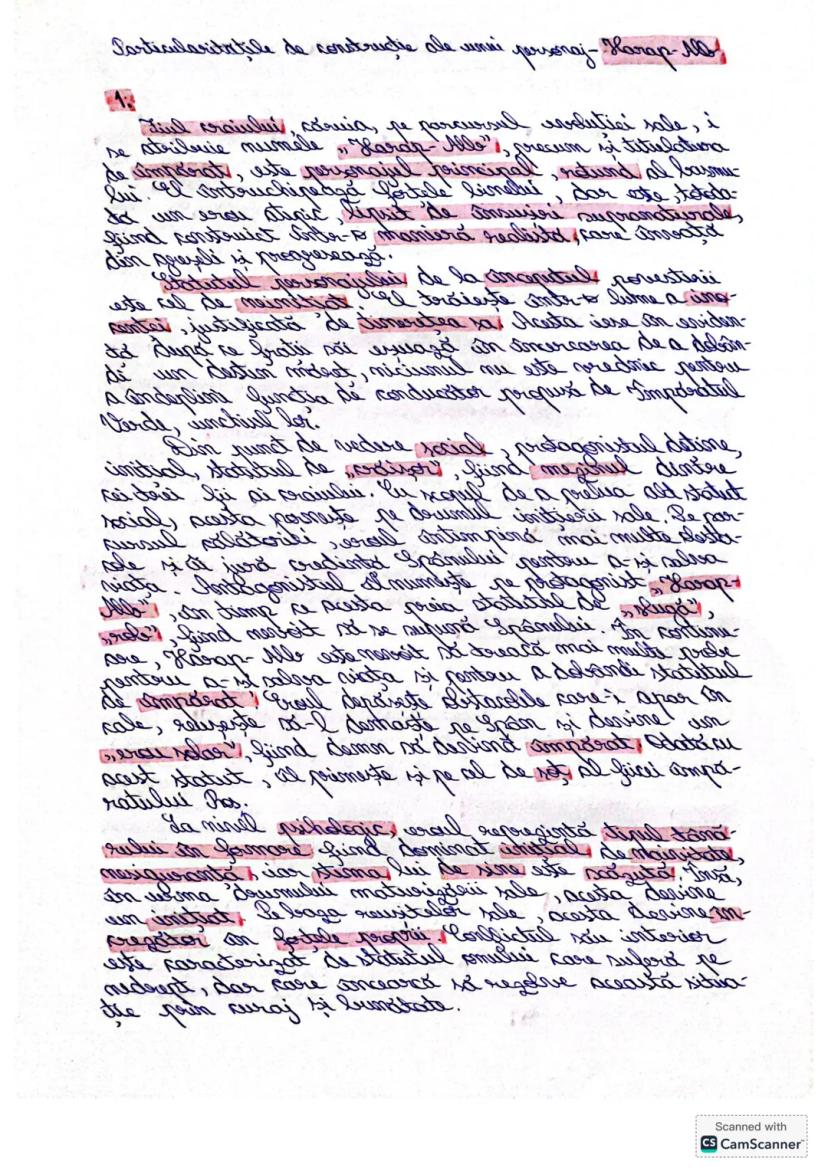 Particularitățile de construcție ale unui personaj- Harap-Alb
1.
Fiul craiului, căruia, pe parcursul evoluției sale, i
se atribuie numele „Harap-Alb”, precum și titulatura
de împărat, este personajul principal, rotund al basmu-
lui. El întruchipează forțele binelui, dar este, totoda-
tă un erou atipic, lipsit de însușiri supranaturale,
fiind construit într-o manieră realistă, care învață
din greșeli și progresează.
Statutul personajului de la începutul povestirii
este cel de neinițiat. El trăiește într-o lume a ino-
cenței, justificată de tinerețea sa. Acesta iese în eviden-
ță după ce frații săi eșuază în încercarea de a dobân-
di un destin măreț, niciunul nu este vrednic pentru
a îndeplini funcția de conducător propusă de Împăratul
Verde, unchiul lor.
Din punct de vedere social, protagonistul deține,
inițial, statutul de „crăișor”, fiind mezinul dintre
cei trei fii ai craiului. Cu scopul de a prelua alt statut
social, acesta pornește pe drumul inițierii sale. Pe par-
cursul călătoriei, eroul întimpină mai multe obsta-
cole și îi jură credință Spânului pentru a-și salva
viața. Antagonistul îl numește pe protagonist „Harap-
Alb”, în timp ce acesta preia statutul de „slugă”,
„rob”, fiind nevoit să se supună Spânului. În continu-
are, Harap-Alb este nevoit să treacă mai multe probe
pentru a-și salva viața și pentru a dobândi statutul
de împărat. Eroul depășește obstacolele care-i apar în
cale, reușește să-l demaște pe Spân și devine un
„erou solar”, fiind demn să devină împărat. Odată cu
acest statut, el primește și pe al de soț al fiicei împă-
ratului Roș.
La nivel psihologic, eroul reprezintă tipul tână-
rului în formare fiind dominat inițial de naivitate,
nesiguranță, iar stima lui de sine este scăzută. Însă,
în urma drumului maturizării sale, acesta devine
un inițiat. Pe baza reușitelor sale, acesta devine în-
crezător în forțele proprii. Conflictul său interior
este caracterizat de statutul omului care suferă pe
nedrept, dar care încearcă să rezolve această situa-
ție prin curaj și bunătate.
Scanned with
CS CamScanner